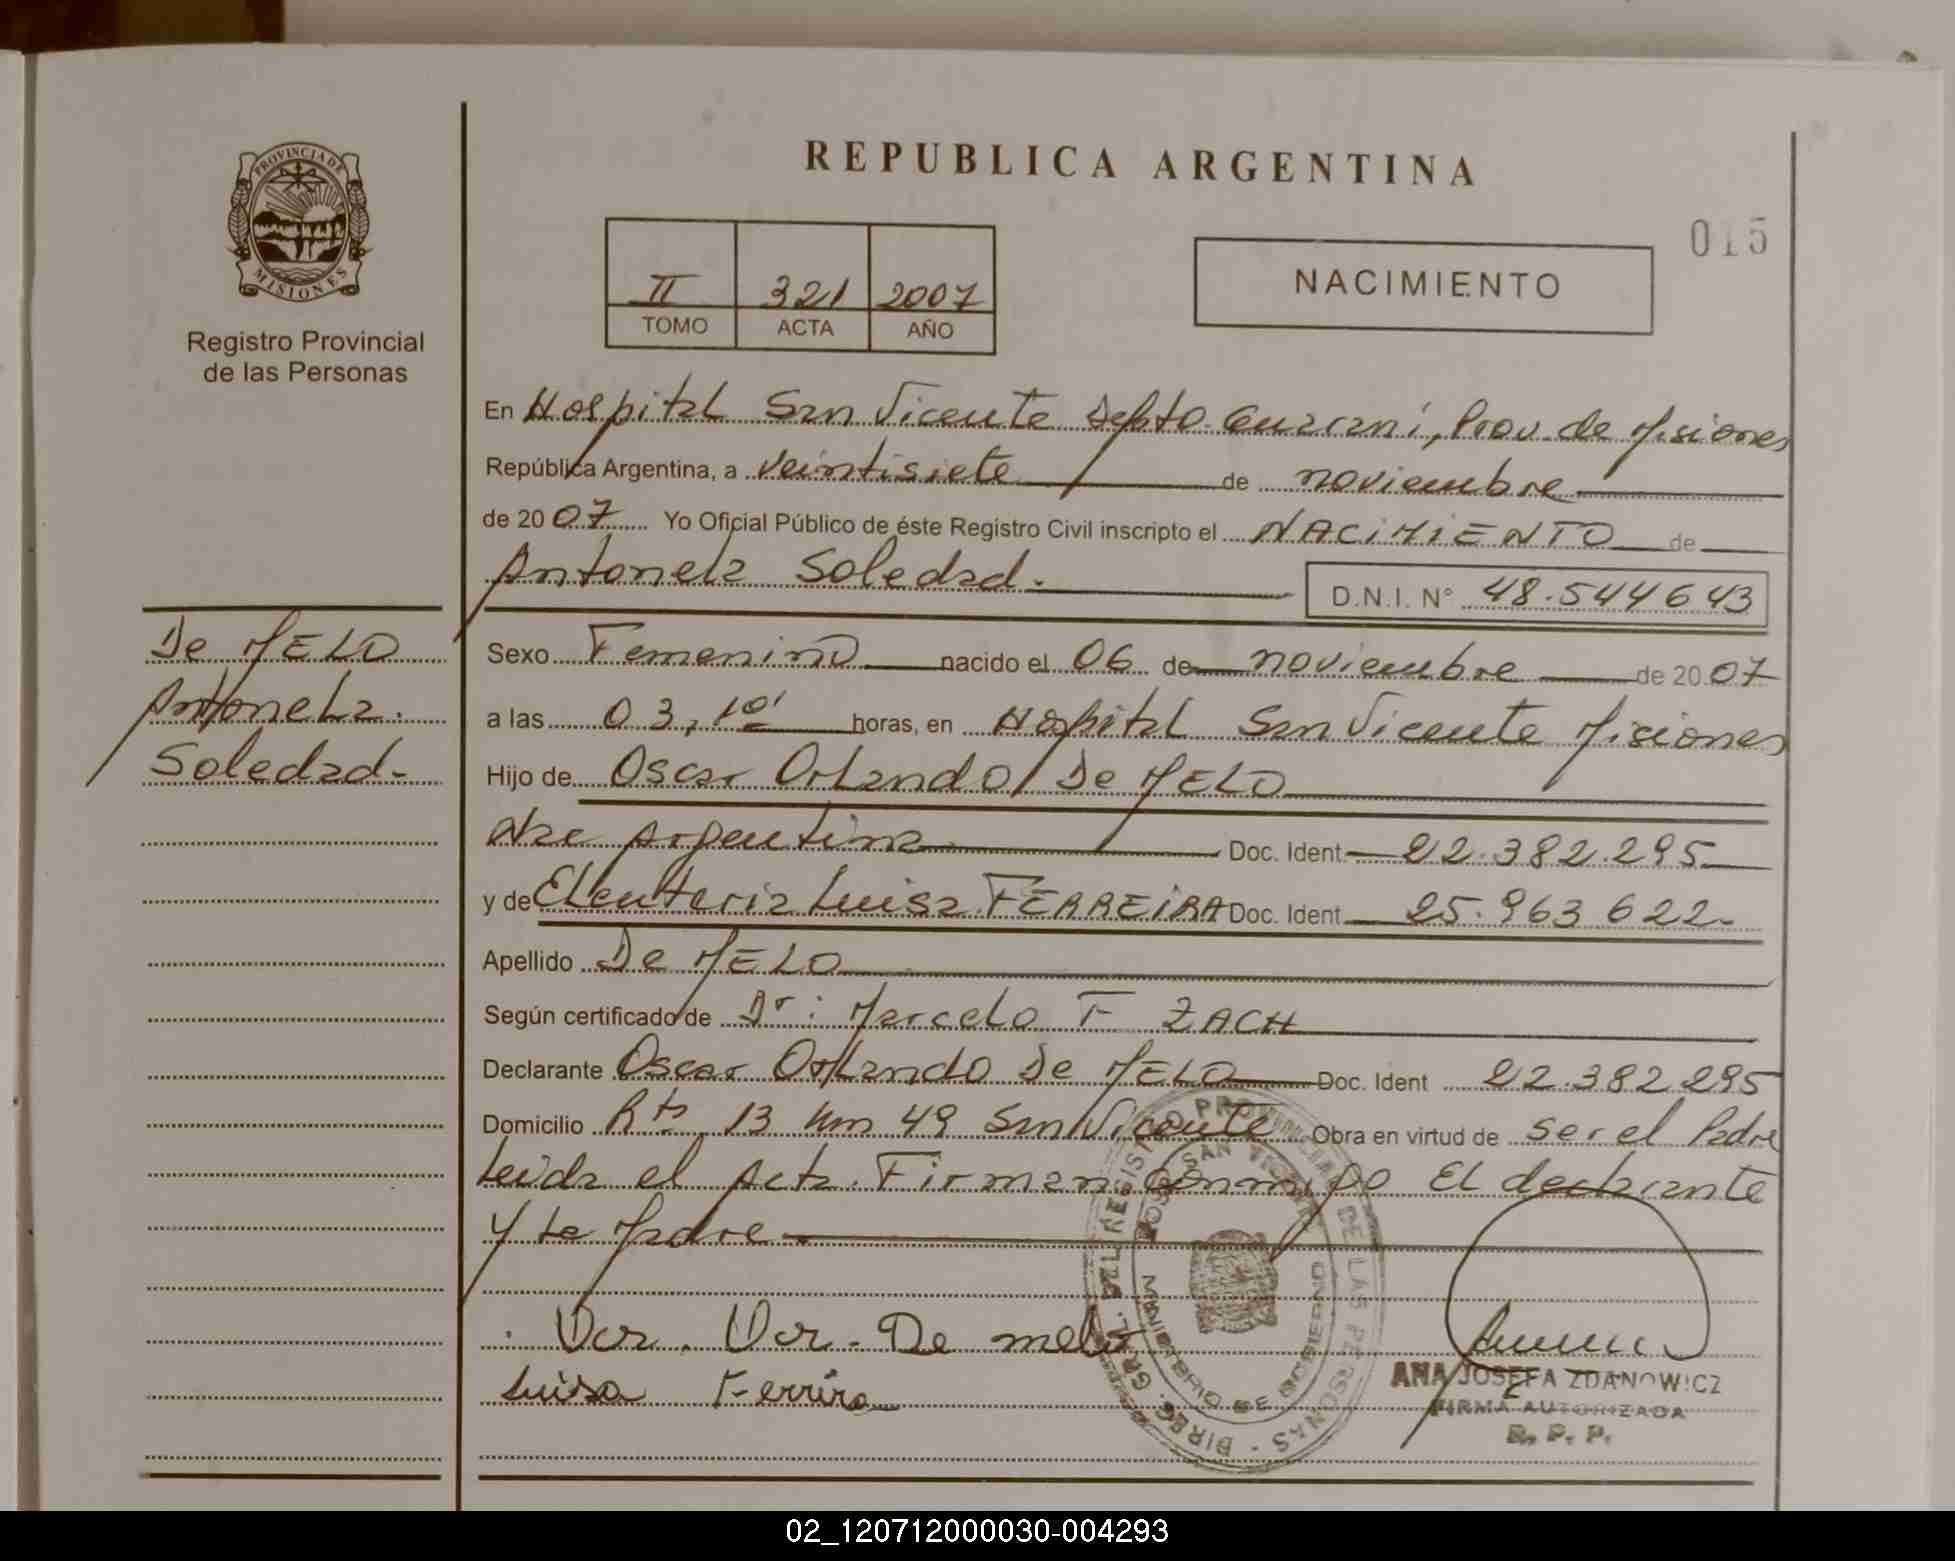 REPUBLICA ARGENTINA
015
PROVINCIA DE
MISIONES
Registro Provincial
de las Personas
II 321 2007
TOMO ACTA AÑO
NACIMIENTO
En Hospital San Vicente Depto. Guarani, Prov. de Misiones
República Argentina, a veintisiete de noviembre
de 2007 Yo Oficial Público de éste Registro Civil inscripto el NACIMIENTO de
Antonela Soledad.
D.N.I. Nº 48.544643
De MELO
Antonela.
Soledad.-
Sexo Femenino nacido el 06 de noviembre de 2007
a las 03,10' horas, en Hospital San Vicente Misiones
Hijo de Oscar Orlando De MELO
Nac Argentina Doc. Ident. 22.382.295
y de Eleuteria Luisa FERREIRA Doc. Ident. 25.963622-
Apellido De MELO
Según certificado de Dr: Marcelo F ZACH
Declarante Oscar Orlando De MELO Doc. Ident 22.382295
Domicilio Rta 13 Km 49 San Vicente Obra en virtud de ser el Padre
Leida el Acta. Firman conmigo El declarante
y la Madre
De melo
Luisa Ferrira
ANA JOSEFA ZDANOWICZ
FIRMA AUTORIZADA
R. P. P.
DIREC. GRAL. DEL REGISTRO PROVINCIAL DE LAS PERSONAS
02_120712000030-004293